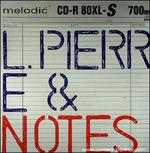 melodic CD-R 80XL-S 700
L.PIERR
E &
NOTES